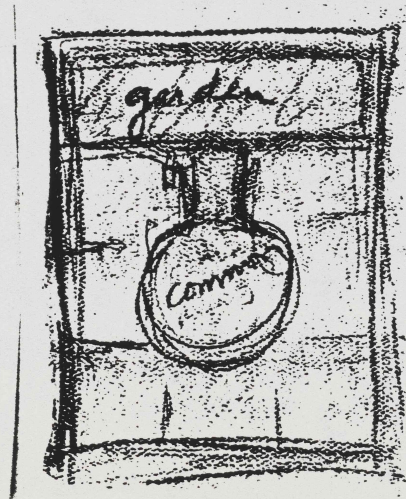 garden
common